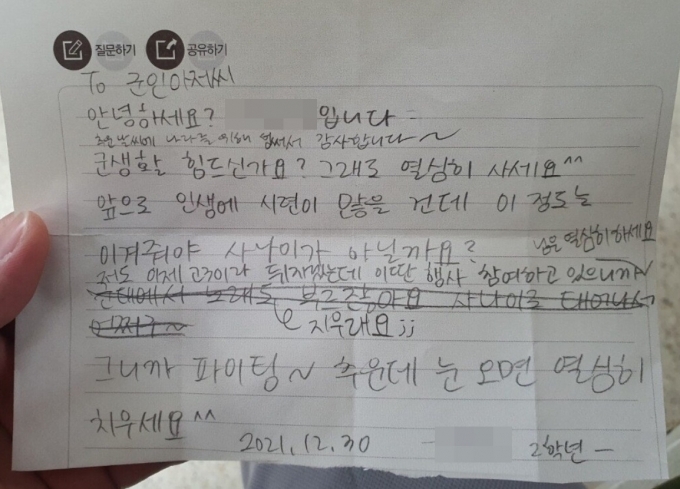 질문하기 공유하기
To 군인아저씨
안녕하세요? 입니다
추운날씨에 나라를 위해 힘써서 감사합니다~
군생활 힘드신가요? 그래도 열심히 사세요^^
앞으로 인생에 시련이 많을 건데 이 정도는
이겨줘야 사나이가 아닐까요?
님은 열심히 하세요
저도 이제 고3이라 뒤지겠는데 이딴 행사 참여하고 있으니까~
군대에서 노래도 부르잖아요 사나이로 태어나서
어쩌구~
지우래요;;
그니까 파이팅~ 추운데 눈 오면 열심히
치우세요^^
2021.12.30 - 2학년 -